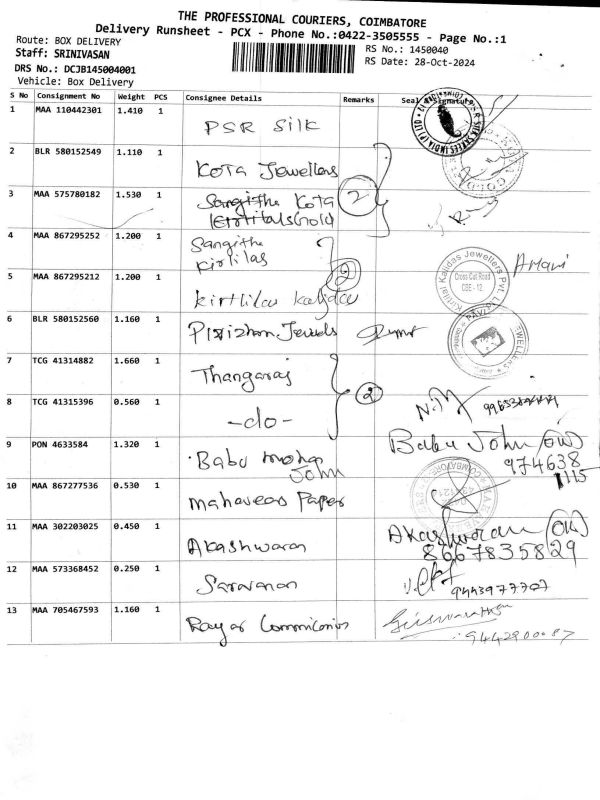 THE PROFESSIONAL COURIERS, COIMBATORE
Delivery Runsheet - PCX - Phone No.:0422-3505555 - Page No.:1
Route: BOX DELIVERY
RS No.: 1450040
Staff: SRINIVASAN
RS Date: 28-Oct-2024
DRS No.: DCJB145004001
Vehicle: Box Delivery
S No Consignment No Weight PCS Consignee Details Remarks Seal & Signature
1 MAA 110442301 1.410 1 PSR Silk
2 BLR 580152549 1.110 1 Kota Jewellers
3 MAA 575780182 1.530 1 Sangitha Kota
2
4 MAA 867295252 1.200 1 Sangitha
Kirtilas
Kirtilal Kalidas Jewellers Pvt. Ltd
Cross Cut Road
CBE - 12
5 MAA 867295212 1.200 1 kirtilas kalidas
2
6 BLR 580152560 1.160 1 Jewels
7 TCG 41314882 1.660 1 Thangaraj
2
8 TCG 41315396 0.560 1 -do-
9 PON 4633584 1.320 1 Babu mohan
John
Babu John
974638
1115
10 MAA 867277536 0.530 1 Mahaveer Paper
11 MAA 302203025 0.450 1 Akashwaran
Akashwaran
8667835829
12 MAA 573368452 0.250 1 Saravanan
9443977707
13 MAA 705467593 1.160 1 Rayar
9442900087